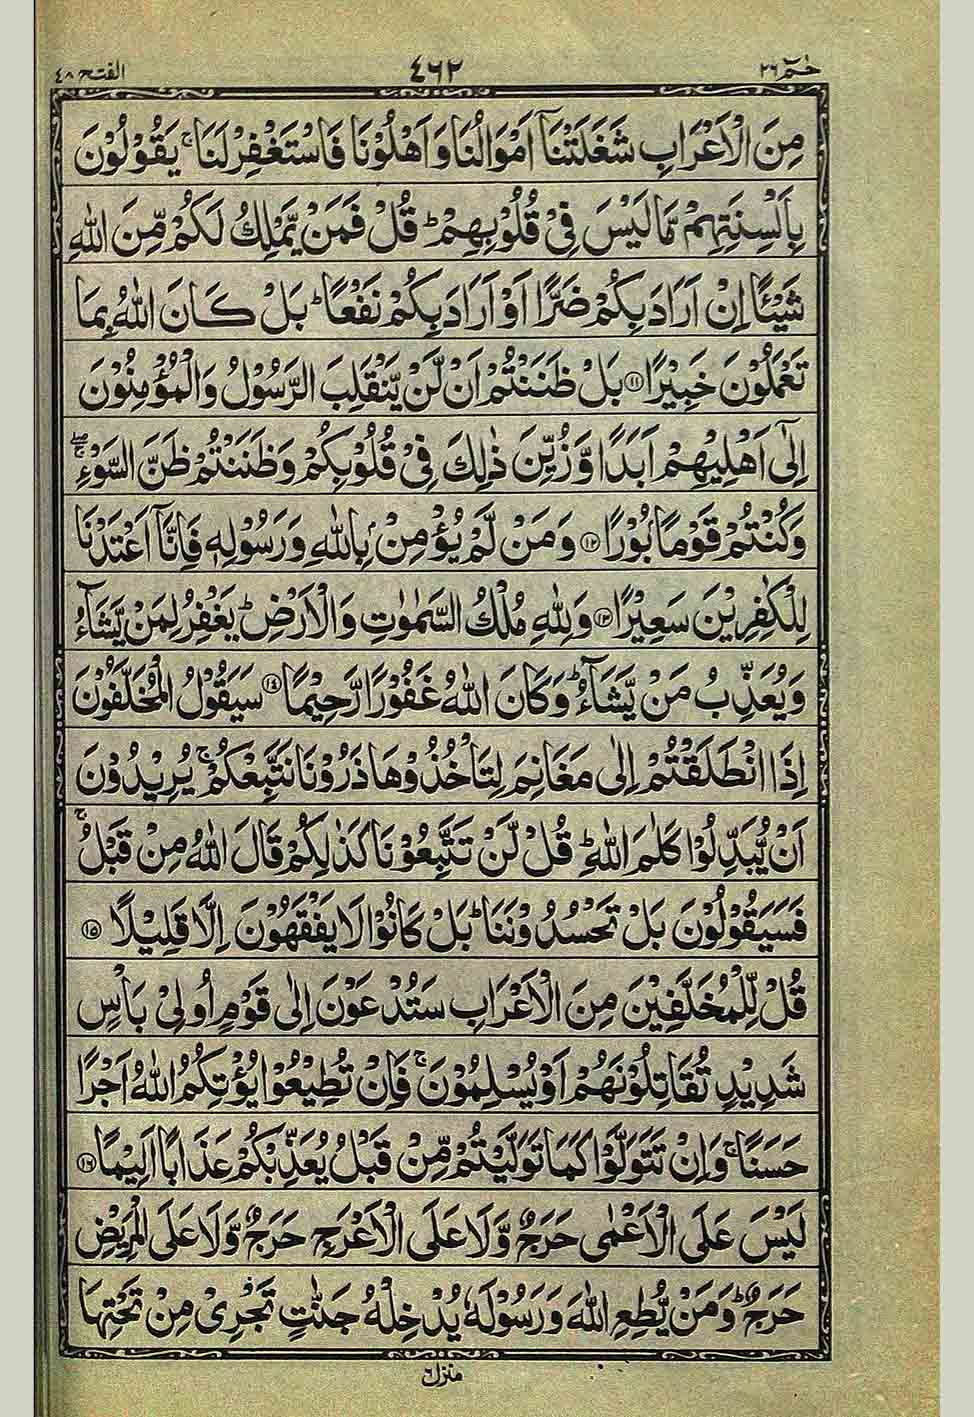 حٰمٓ ٢٦ ٤٦٢ الفتح ٤٨
مِنَ الْاَعْرَابِ شَغَلَتْنَاۤ اَمْوَالُنَا وَاَهْلُوْنَا فَاسْتَغْفِرْ لَنَا ۚ يَقُوْلُوْنَ
بِاَلْسِنَتِهِمْ مَّا لَيْسَ فِیْ قُلُوْبِهِمْ ؕ قُلْ فَمَنْ يَّمْلِكُ لَكُمْ مِّنَ اللّٰهِ
شَيْئًا اِنْ اَرَادَ بِكُمْ ضَرًّا اَوْ اَرَادَ بِكُمْ نَفْعًا ؕ بَلْ كَانَ اللّٰهُ بِمَا
تَعْمَلُوْنَ خَبِيْرًا ﴿١١﴾ بَلْ ظَنَنْتُمْ اَنْ لَّنْ يَّنْقَلِبَ الرَّسُوْلُ وَالْمُؤْمِنُوْنَ
اِلٰۤی اَهْلِيْهِمْ اَبَدًا وَّزُيِّنَ ذٰلِكَ فِیْ قُلُوْبِكُمْ وَظَنَنْتُمْ ظَنَّ السَّوْءِ ۖۚ
وَكُنْتُمْ قَوْمًۢا بُوْرًا ﴿١٢﴾ وَمَنْ لَّمْ يُؤْمِنْۢ بِاللّٰهِ وَرَسُوْلِهٖ فَاِنَّاۤ اَعْتَدْنَا
لِلْكٰفِرِيْنَ سَعِيْرًا ﴿١٣﴾ وَلِلّٰهِ مُلْكُ السَّمٰوٰتِ وَالْاَرْضِ ؕ يَغْفِرُ لِمَنْ يَّشَآءُ
وَيُعَذِّبُ مَنْ يَّشَآءُ ؕ وَكَانَ اللّٰهُ غَفُوْرًا رَّحِيْمًا ﴿١٤﴾ سَيَقُوْلُ الْمُخَلَّفُوْنَ
اِذَا انْطَلَقْتُمْ اِلٰی مَغَانِمَ لِتَاْخُذُوْهَا ذَرُوْنَا نَتَّبِعْكُمْ ۚ يُرِيْدُوْنَ
اَنْ يُّبَدِّلُوْا كَلٰمَ اللّٰهِ ؕ قُلْ لَّنْ تَتَّبِعُوْنَا كَذٰلِكُمْ قَالَ اللّٰهُ مِنْ قَبْلُ ۚ
فَسَيَقُوْلُوْنَ بَلْ تَحْسُدُوْنَنَا ؕ بَلْ كَانُوْا لَا يَفْقَهُوْنَ اِلَّا قَلِيْلًا ﴿١٥﴾
قُلْ لِّلْمُخَلَّفِيْنَ مِنَ الْاَعْرَابِ سَتُدْعَوْنَ اِلٰی قَوْمٍ اُولِیْ بَاْسٍ
شَدِيْدٍ تُقَاتِلُوْنَهُمْ اَوْ يُسْلِمُوْنَ ۚ فَاِنْ تُطِيْعُوْا يُؤْتِكُمُ اللّٰهُ اَجْرًا
حَسَنًا ۚ وَاِنْ تَتَوَلَّوْا كَمَا تَوَلَّيْتُمْ مِّنْ قَبْلُ يُعَذِّبْكُمْ عَذَابًا اَلِيْمًا ﴿١٦﴾
لَيْسَ عَلَی الْاَعْمٰی حَرَجٌ وَّلَا عَلَی الْاَعْرَجِ حَرَجٌ وَّلَا عَلَی الْمَرِيْضِ
حَرَجٌ ؕ وَمَنْ يُّطِعِ اللّٰهَ وَرَسُوْلَهٗ يُدْخِلْهُ جَنّٰتٍ تَجْرِیْ مِنْ تَحْتِهَا
منزل ٦